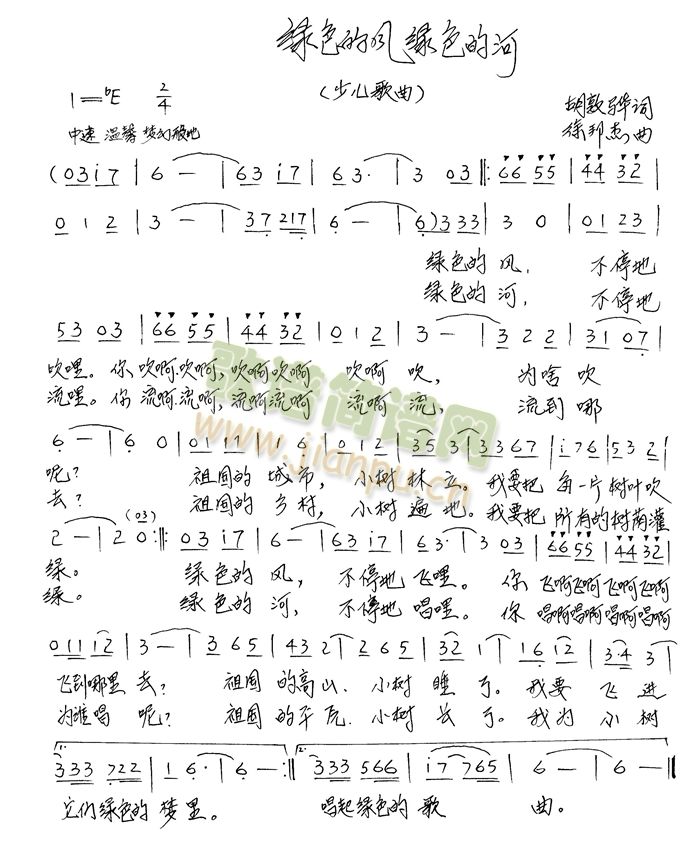 绿色的风 绿色的河
(少儿歌曲)
1=♭E 2/4
胡敦骅词
中速 温馨 梦幻般地
徐邦杰曲
(03i7 | 6 — | 63 i7 | 63· | 3 03 ‖: 66 55 | 44 32 |
012 | 3 — | 37 217 | 6 — | 6)333 | 3 0 | 01 23 |
绿色的 风, 不停地
绿色的 河, 不停地
53 03 | 66 55 | 44 32 | 012 | 3 — | 322 | 31 07 |
吹哩。你 吹啊吹啊,吹啊吹啊 吹啊 吹, 为啥 吹
流哩。你 流啊流啊,流啊流啊 流啊 流, 流到 哪
6 — | 6 0 | 01 11 | 16 | 012 | 35 3 | 33 67 | i76 | 532 |
呢? 祖国的 城市, 小树 林立。我要把 每一片树叶吹
去? 祖国的 乡村, 小树 遍地。我要把 所有的树荫灌
2 — | 2 0 (03) :‖: 03 i7 | 6 — | 63 i7 | 63· | 3 03 | 66 55 | 44 32 |
绿。 绿色的 风, 不停地 飞哩。 你 飞啊飞啊飞啊飞啊
绿。 绿色的 河, 不停地 唱哩。 你 唱啊唱啊唱啊唱啊
011 12 | 3 — | 365 | 43 2 | 265 | 32 1 | 16 12 | 3·4 3 |
飞到哪里 去? 祖国 的高山、小树 睡了。我要 飞进
为谁唱 呢? 祖国 的平原、小树 长了。我为 小树
1. 333 722 | 1 6· | 6 — :‖ 2. 333 566 | i7 765 | 6 — | 6 — ‖
它们绿色的 梦里。 唱起绿色的 歌 曲。
歌谱简谱网
www.jianpu.cn